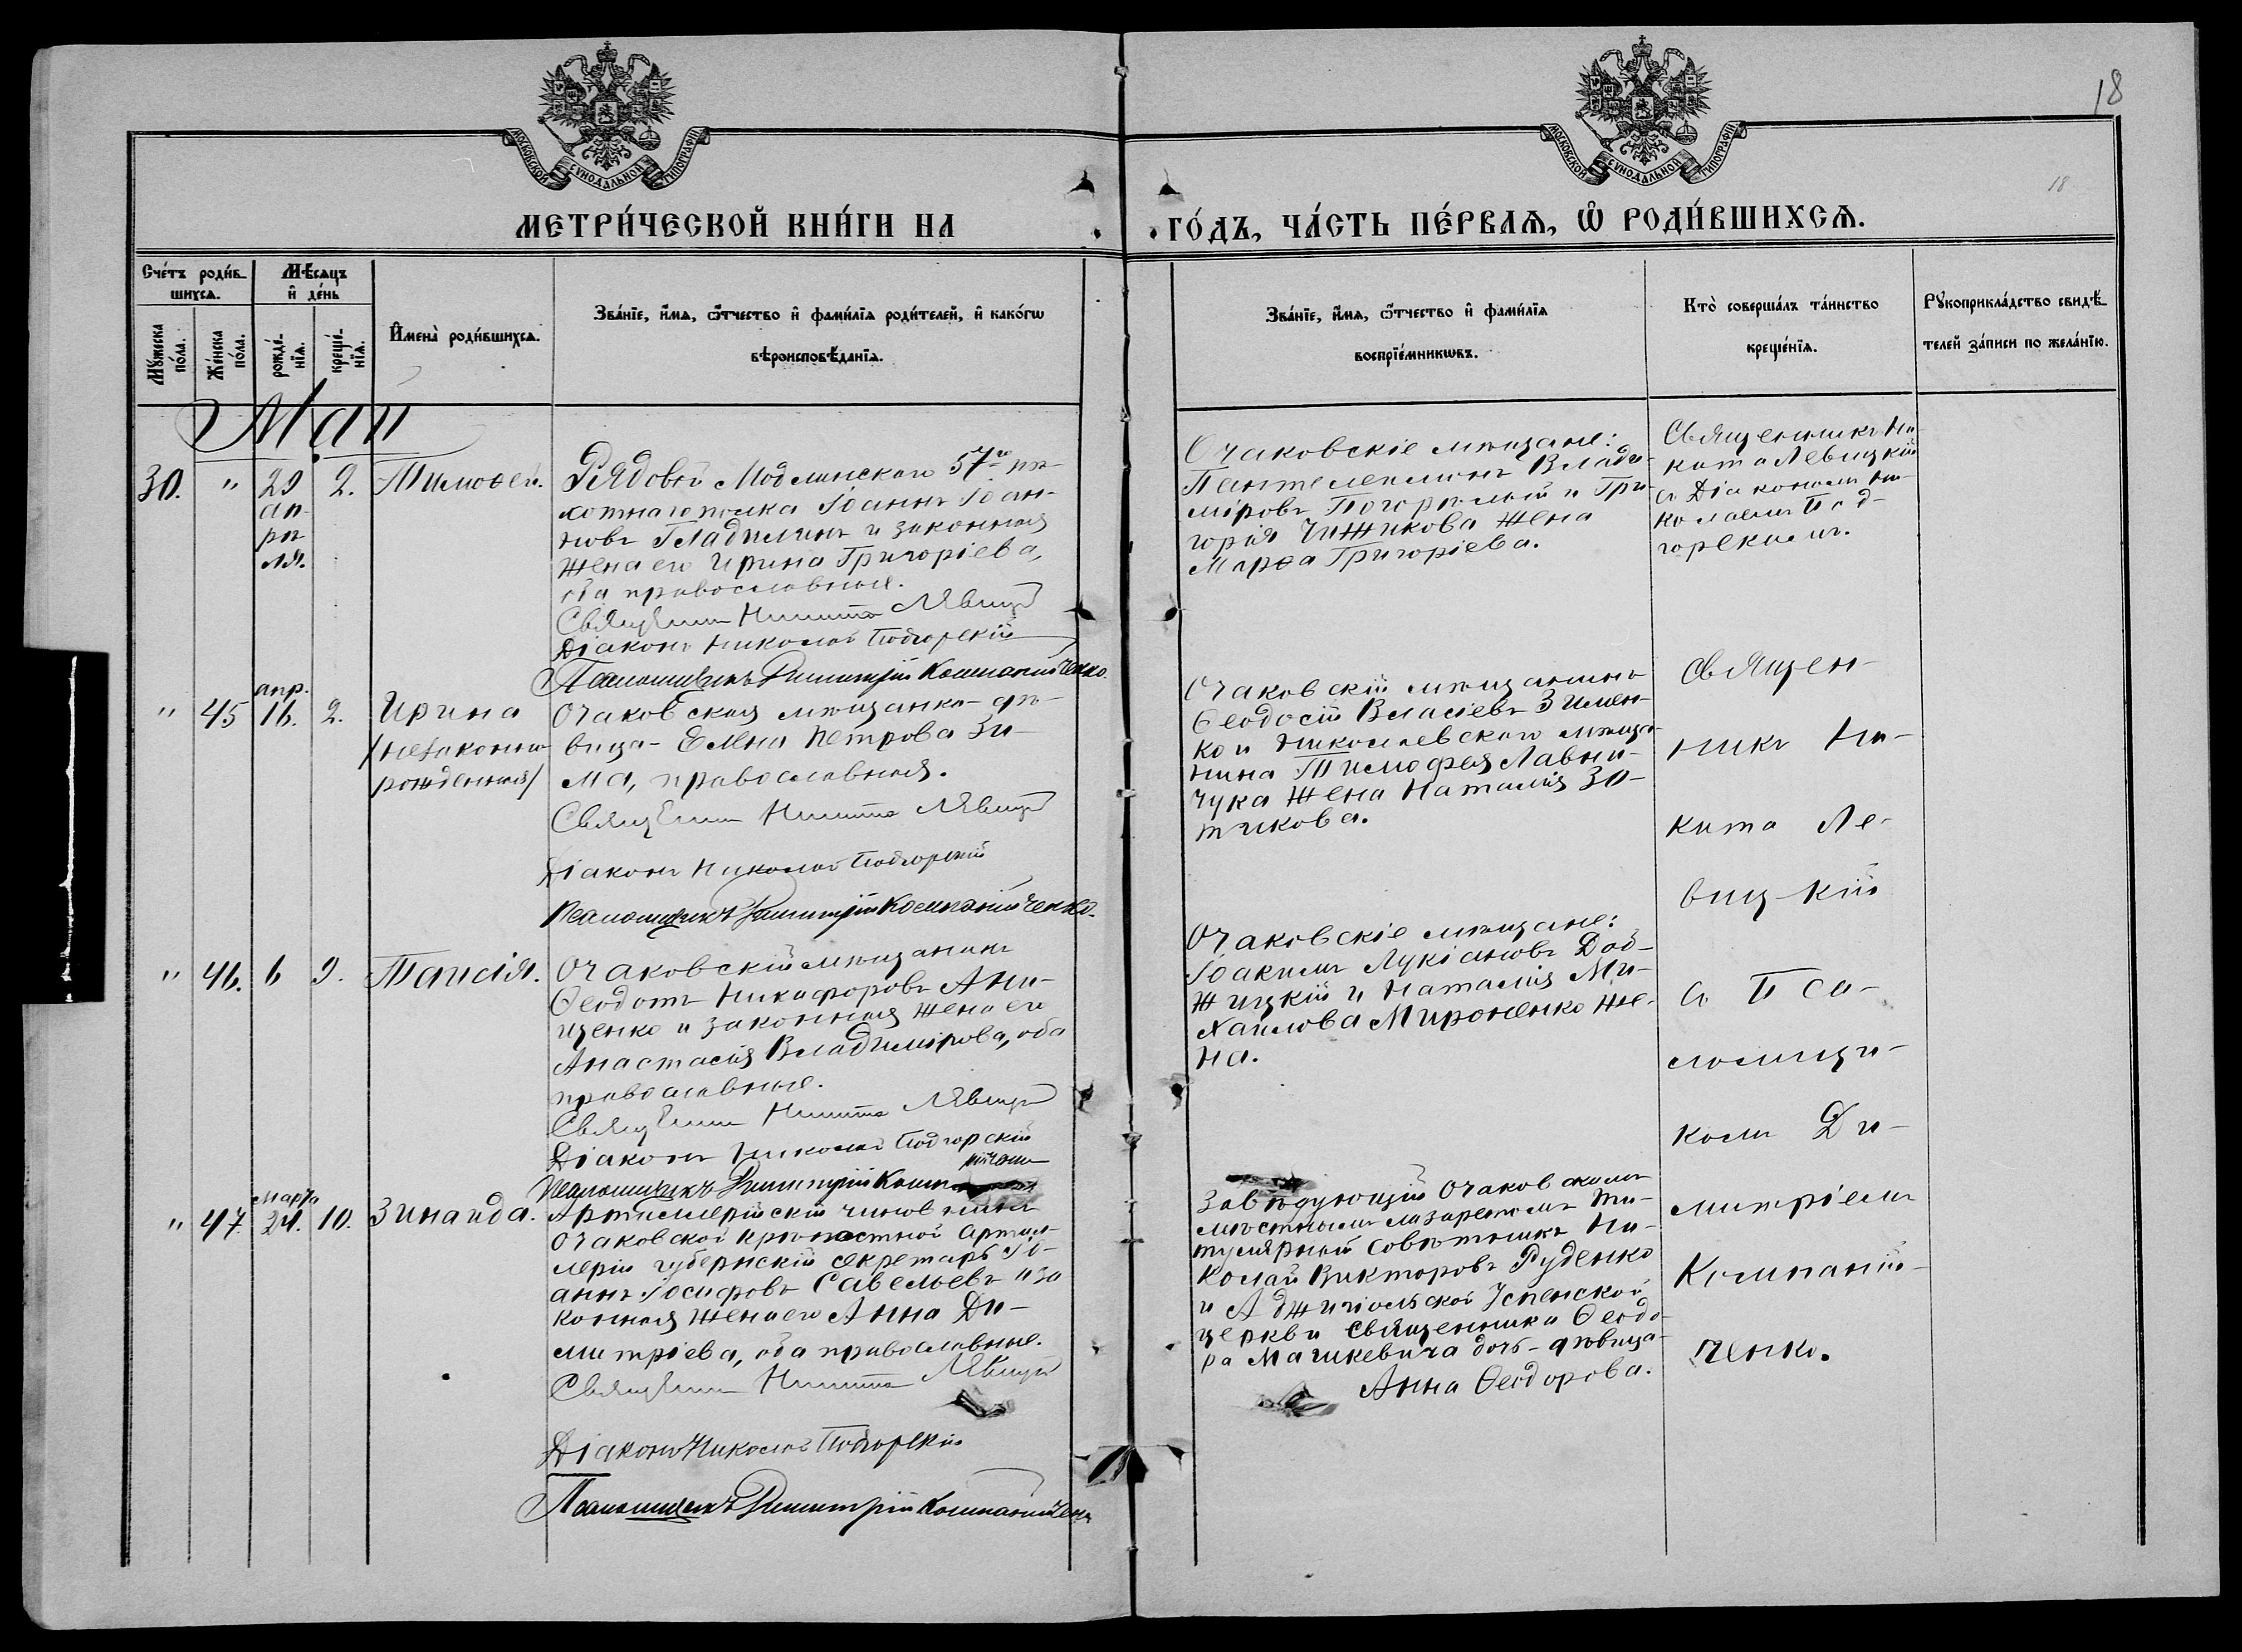 18
18
МОСКОВСКОЙ СѴНОДАЛЬНОЙ ТИПОГРАФІИ
МОСКОВСКОЙ СѴНОДАЛЬНОЙ ТИПОГРАФІИ
МЕТРИ́ЧЕСКОЙ КНИ́ГИ НА
ГО́ДЪ, ЧА́СТЬ ПЕ́РВАѦ, Ѽ РОДИ́ВШИХСѦ.
Сче́тъ роди́в-
шихсѧ.
Мꙋжеска по́ла.
Же́нска по́ла.
Мѣ́сѧцъ
и҆ де́нь
рожде́-
нїѧ.
креще́-
нїѧ.
И҆мена̀ роди́вшихсѧ.
Зва́нїе, и҆́мѧ, ѻ҆́тчество и҆ фами́лїѧ роди́телей, и҆ како́гѡ
вѣроисповѣ́данїѧ.
Зва́нїе, и҆́мѧ, ѻ҆́тчество и҆ фами́лїѧ
воспрїе́мникѡвъ.
Кто̀ соверша́лъ та́инство
креще́нїѧ.
Рꙋкоприкла́дство свидѣ́-
телей за́писи по жела́нїю.
Май
30.
"
29
ап-
рѣ-
ля.
2.
Тимоѳей.
Рядовой Модлинскаго 57го пѣ-
хотнаго полка Іоаннъ Іоан-
новъ Гладилинъ и законная
жена его Ирина Григоріева,
оба православные.
Священник Никита Левицк
Діаконъ Николай Подгорскій
Псаломщикъ Димитрій Компанійченко.
Очаковскіе мѣщане:
Пантелеимонъ Влади-
міровъ Погорѣлый и Гри-
горія Чижикова жена
Марѳа Григоріева.
Священникъ Ни-
кита Левицкій
съ Діакономъ Ни-
колаемъ Под-
горскимъ.
"
45
апр.
16.
2.
Ирина
/незаконно
рожденная/
Очаковская мѣщанка-дѣ-
вица- Елена Петрова Зи-
ма, православная.
Священник Никита Левицк
Діаконъ Николай Подгорскій
Псаломщикъ Димитрій Компанійченко.
Очаковскій мѣщанинъ
Ѳеодосій Власіевъ Зимен-
ко и Николаевскаго мѣща-
нина Тимофея Лавни-
чука жена Наталія Зо-
тикова.
Священ-
никъ Ни-
кита Ле-
вицкій
съ Пса-
ломщи-
комъ Ди-
митріемъ
Компаній-
ченко.
"
46.
6
9.
Таисія.
Очаковскій мѣщанинъ
Ѳеодотъ Никифоровъ Ани-
щенко и законная жена его
Анастасія Владимірова, оба
православные.
Священник Никита Левицк
Діаконъ Николай Подгорскій
Псаломщикъ Димитрій Комп
Очаковскіе мѣщане:
Іоакимъ Лукіановъ Дод-
жицкій и Наталія Ми-
хаилова Мироненко же-
на.
"
47.
Марта
24.
10.
Зинаида.
Артиллерійскій чиновникъ
Очаковской крѣпостной Артил-
леріи губернскій секретарь Іо-
аннъ Іосифовъ Савельевъ и за
конная жена его Анна Ди-
митріева, оба православные.
Священник Никита Левицк
Діаконъ Николай Подгорскій
Псаломщикъ Димитрій Компанійченк
Завѣдующій Очаковскимъ
мѣстнымъ лазаретомъ Ти-
тулярный Совѣтникъ Ни-
колай Викторовъ Руденко
и Аджигіольской Успенской
церкви священника Ѳеодо-
ра Мацкевича дочь-дѣвица
Анна Ѳеодорова.